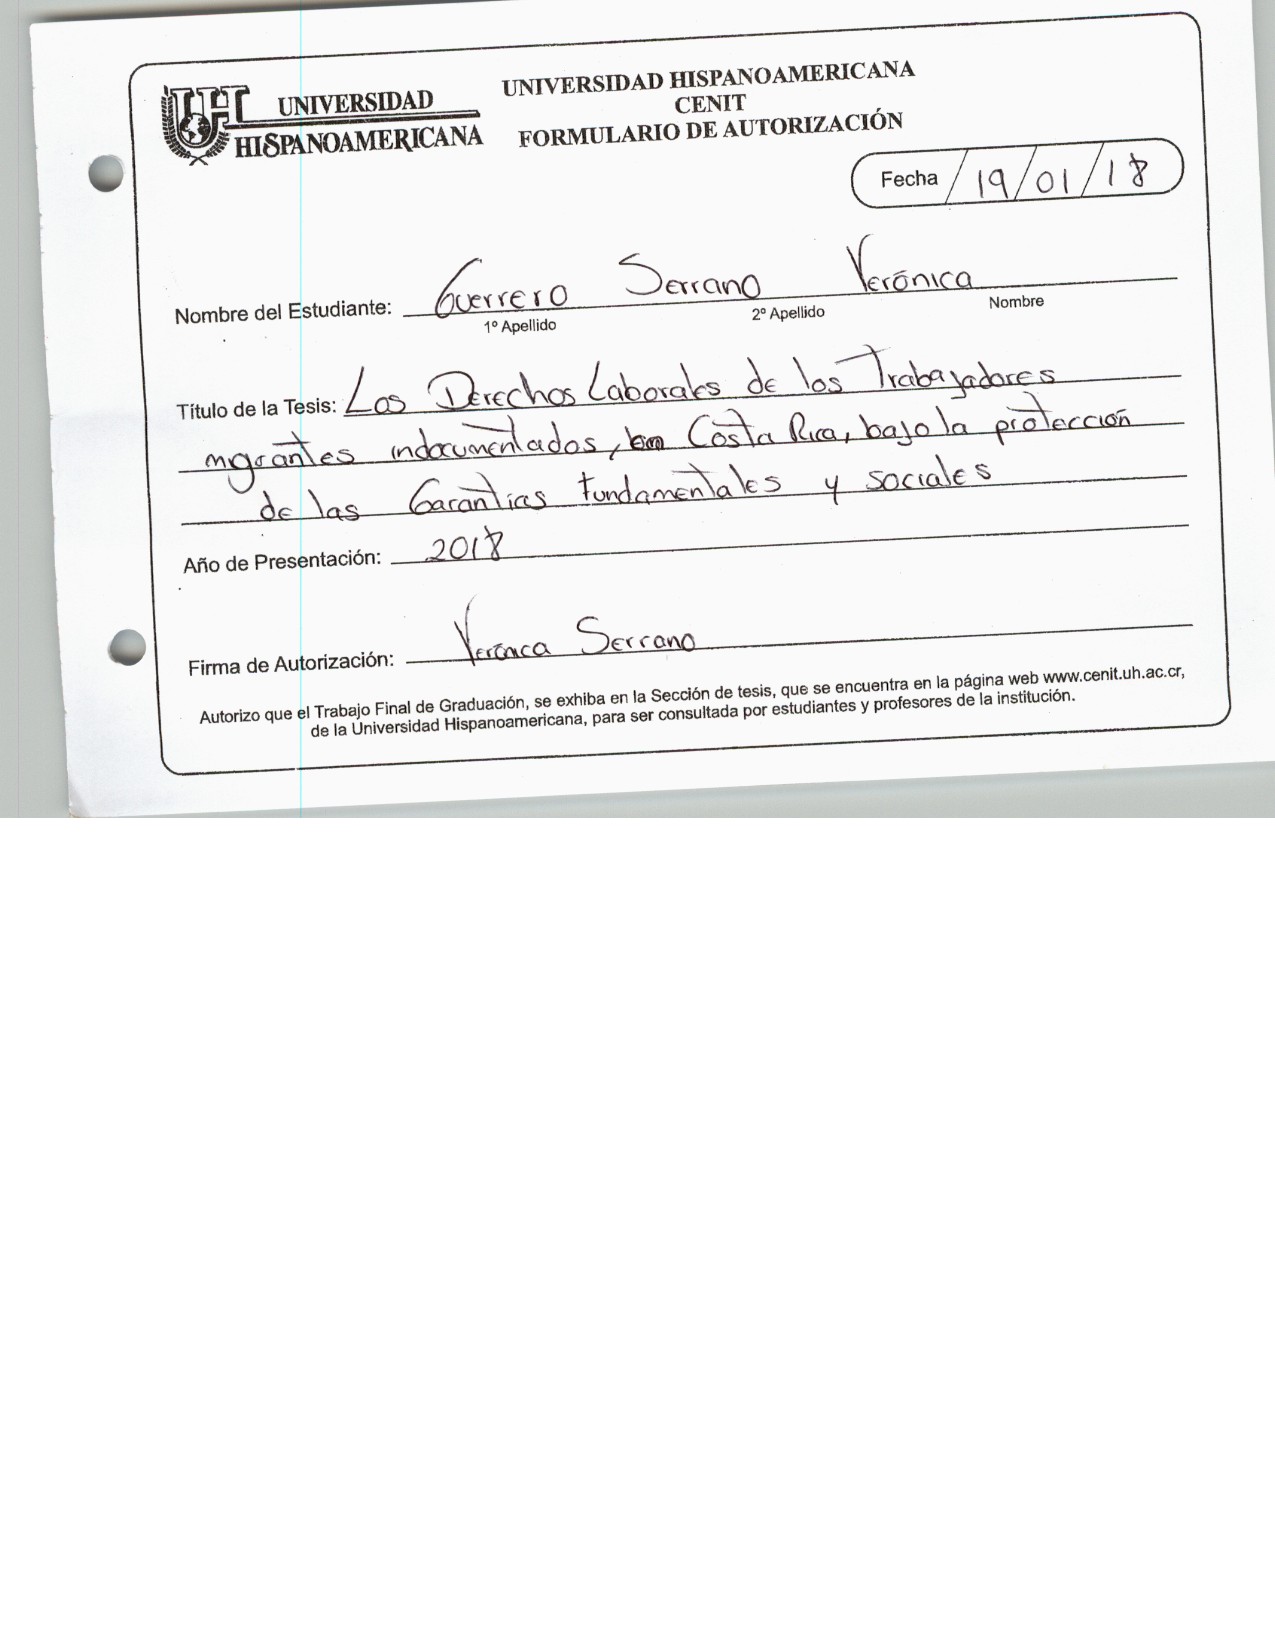 UNIVERSIDAD
HISPANOAMERICANA
UNIVERSIDAD HISPANOAMERICANA
CENIT
FORMULARIO DE AUTORIZACIÓN
Fecha / 19/01/18
Nombre del Estudiante: Guerrero Serrano Verónica
1º Apellido 2º Apellido Nombre
Título de la Tesis: Los Derechos Laborales de los Trabajadores
migrantes indocumentados, en Costa Rica, bajo la protección
de las Garantías fundamentales y sociales
Año de Presentación: 2018
Firma de Autorización: Verónica Serrano
Autorizo que el Trabajo Final de Graduación, se exhiba en la Sección de tesis, que se encuentra en la página web www.cenit.uh.ac.cr,
de la Universidad Hispanoamericana, para ser consultada por estudiantes y profesores de la institución.